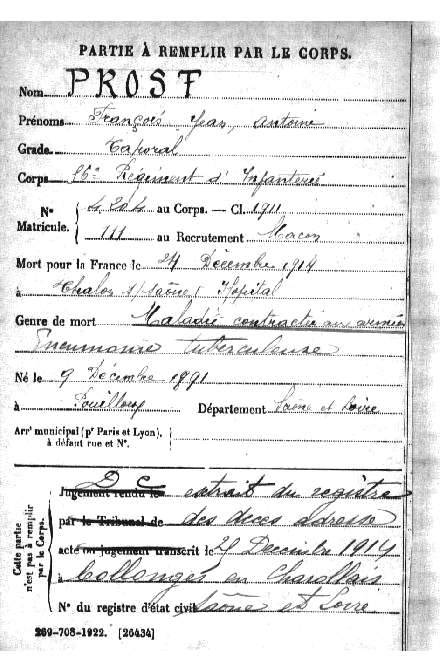 PARTIE À REMPLIR PAR LE CORPS.
Nom PROST
Prénoms François Jean, Antoine
Grade Caporal
Corps Régiment d'Infanterie
N° Matricule. { 4 204 au Corps. — Cl. 1911
111 au Recrutement Macon
Mort pour la France le 24 Décembre 1914
à Chalon s/ Saône, Hôpital
Genre de mort Maladie contractée aux armées
Pneumonie tuberculeuse
Né le 9 Décembre 1891
à Pouilloux Département Saône et Loire
Arrt municipal (pr Paris et Lyon), à défaut rue et N°.
Cette partie n'est pas à remplir par le Corps.
D C
Jugement rendu le extrait du registre
par le Tribunal de des décès adressé
acte ou jugement transcrit le Décembre 1914
à Collonges en Charollais
N° du registre d'état civil Saône et Loire
269-708-1922. [26434]